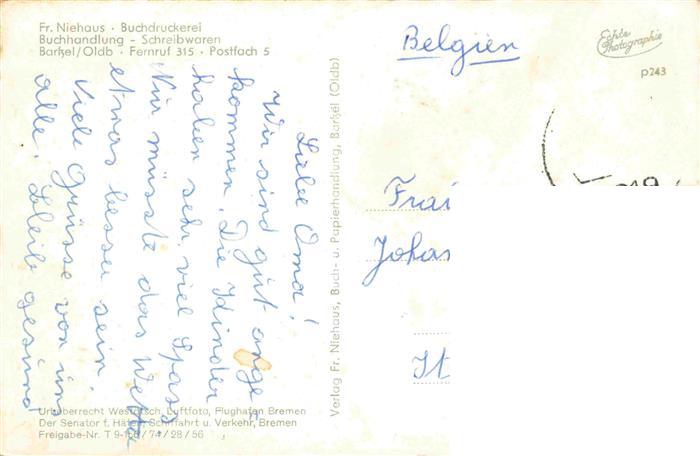 Fr. Niehaus · Buchdruckerei
Buchhandlung – Schreibwaren
Barßel/Oldb · Fernruf 315 · Postfach 5
Liebe Oma!
Wir sind gut ange-
kommen. Die Kinder
haben sehr viel Spass
Nur müsste das Wetter
etwas besser sein.
Viele Grüsse von uns
alle, bleib gesund
Urheberrecht Westdtsch. Luftfoto, Flughafen Bremen
Der Senator f. Häfen, Schiffahrt u. Verkehr, Bremen
Freigabe-Nr. T 9-156/74/28/56
Verlag Fr. Niehaus, Buch- u. Papierhandlung, Barßel (Oldb)
Belgien
Echte
Photographie
p243
Frau
Johan